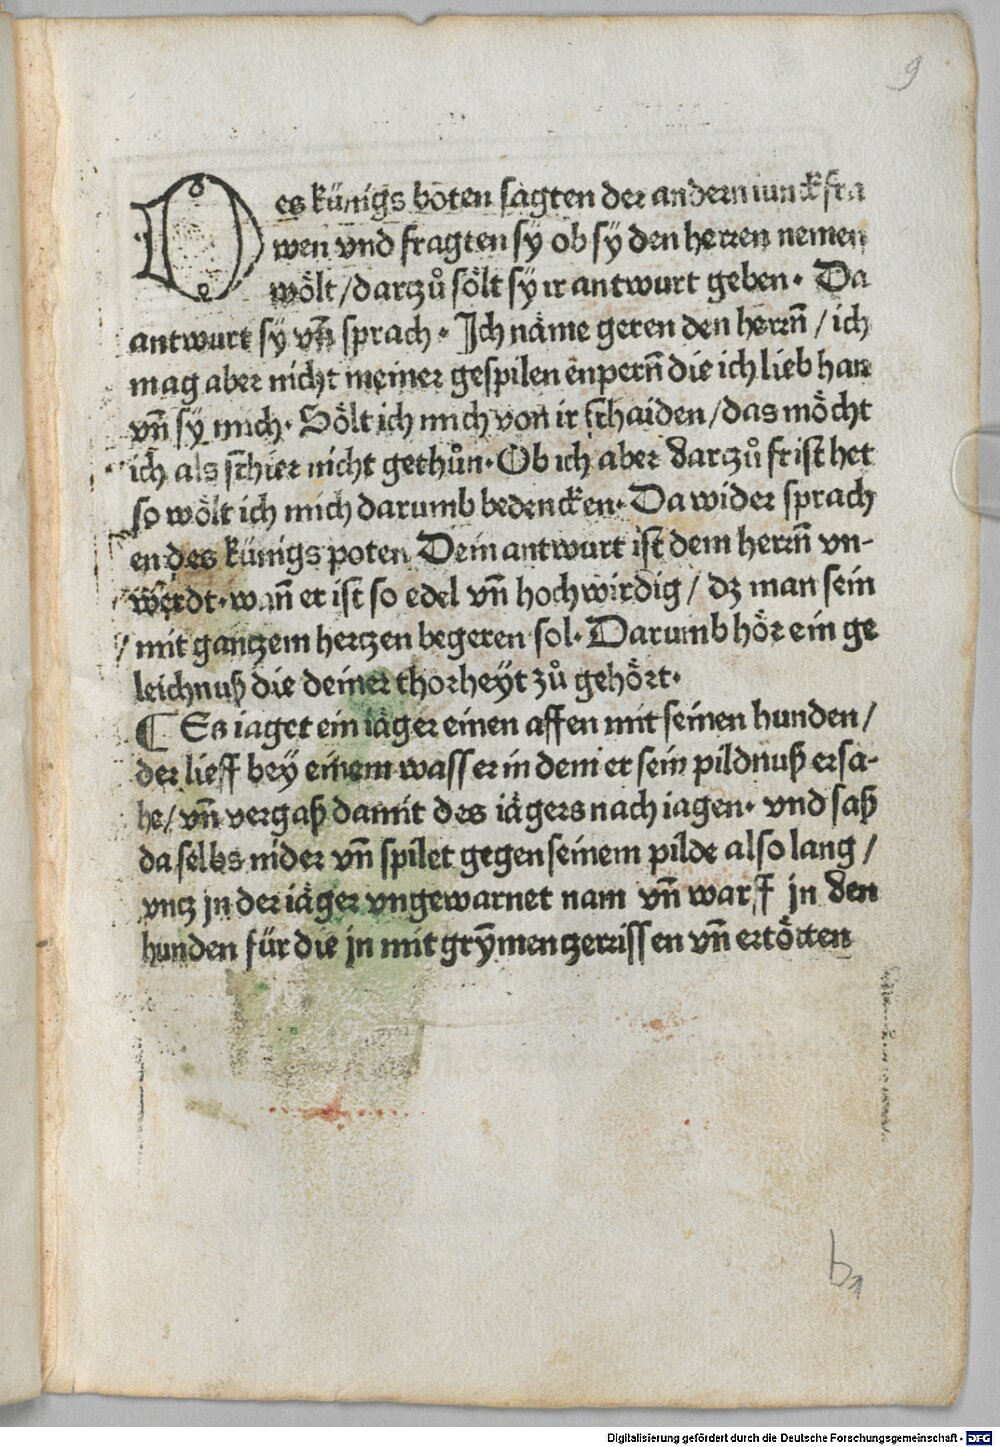 9
Des künigs boten sagten der andern iunckfra
wen vnd fragten sy ob sy den herren nemen
wölt / darczů sölt sy ir antwurt geben. Da
antwurt sy vn̄ sprach. Ich näme geren den herrn̄ / ich
mag aber nicht meiner gespilen enpern̄ die ich lieb han
vn̄ sy mich. Sölt ich mich von ir schaiden / das möcht
ich als schier nicht gethůn. Ob ich aber darczů frist het
so wölt ich mich darumb bedencken. Da wider sprach
en des künigs poten Dein antwurt ist dem herrn̄ vn-
werdt. wan̄ er ist so edel vn̄ hochwirdig / dz man sein
mit gantzem hertzen begeren sol. Darumb hör ein ge
leichnuß die deiner thorheyt zů gehört.
¶ Es iaget ein iäger einen affen mit seinen hunden /
der lieff bey einem wasser in dem er sein pildnuß ersa-
he / vn̄ vergaß damit des iägers nach iagen. vnd saß
daselbs nider vn̄ spilet gegen seinem pilde also lang /
vntz jn der iäger vngewarnet nam vn̄ warff jn den
hunden für die jn mit grȳmen tzerrissen vn̄ ertötten
b1
Digitalisierung gefördert durch die Deutsche Forschungsgemeinschaft - DFG